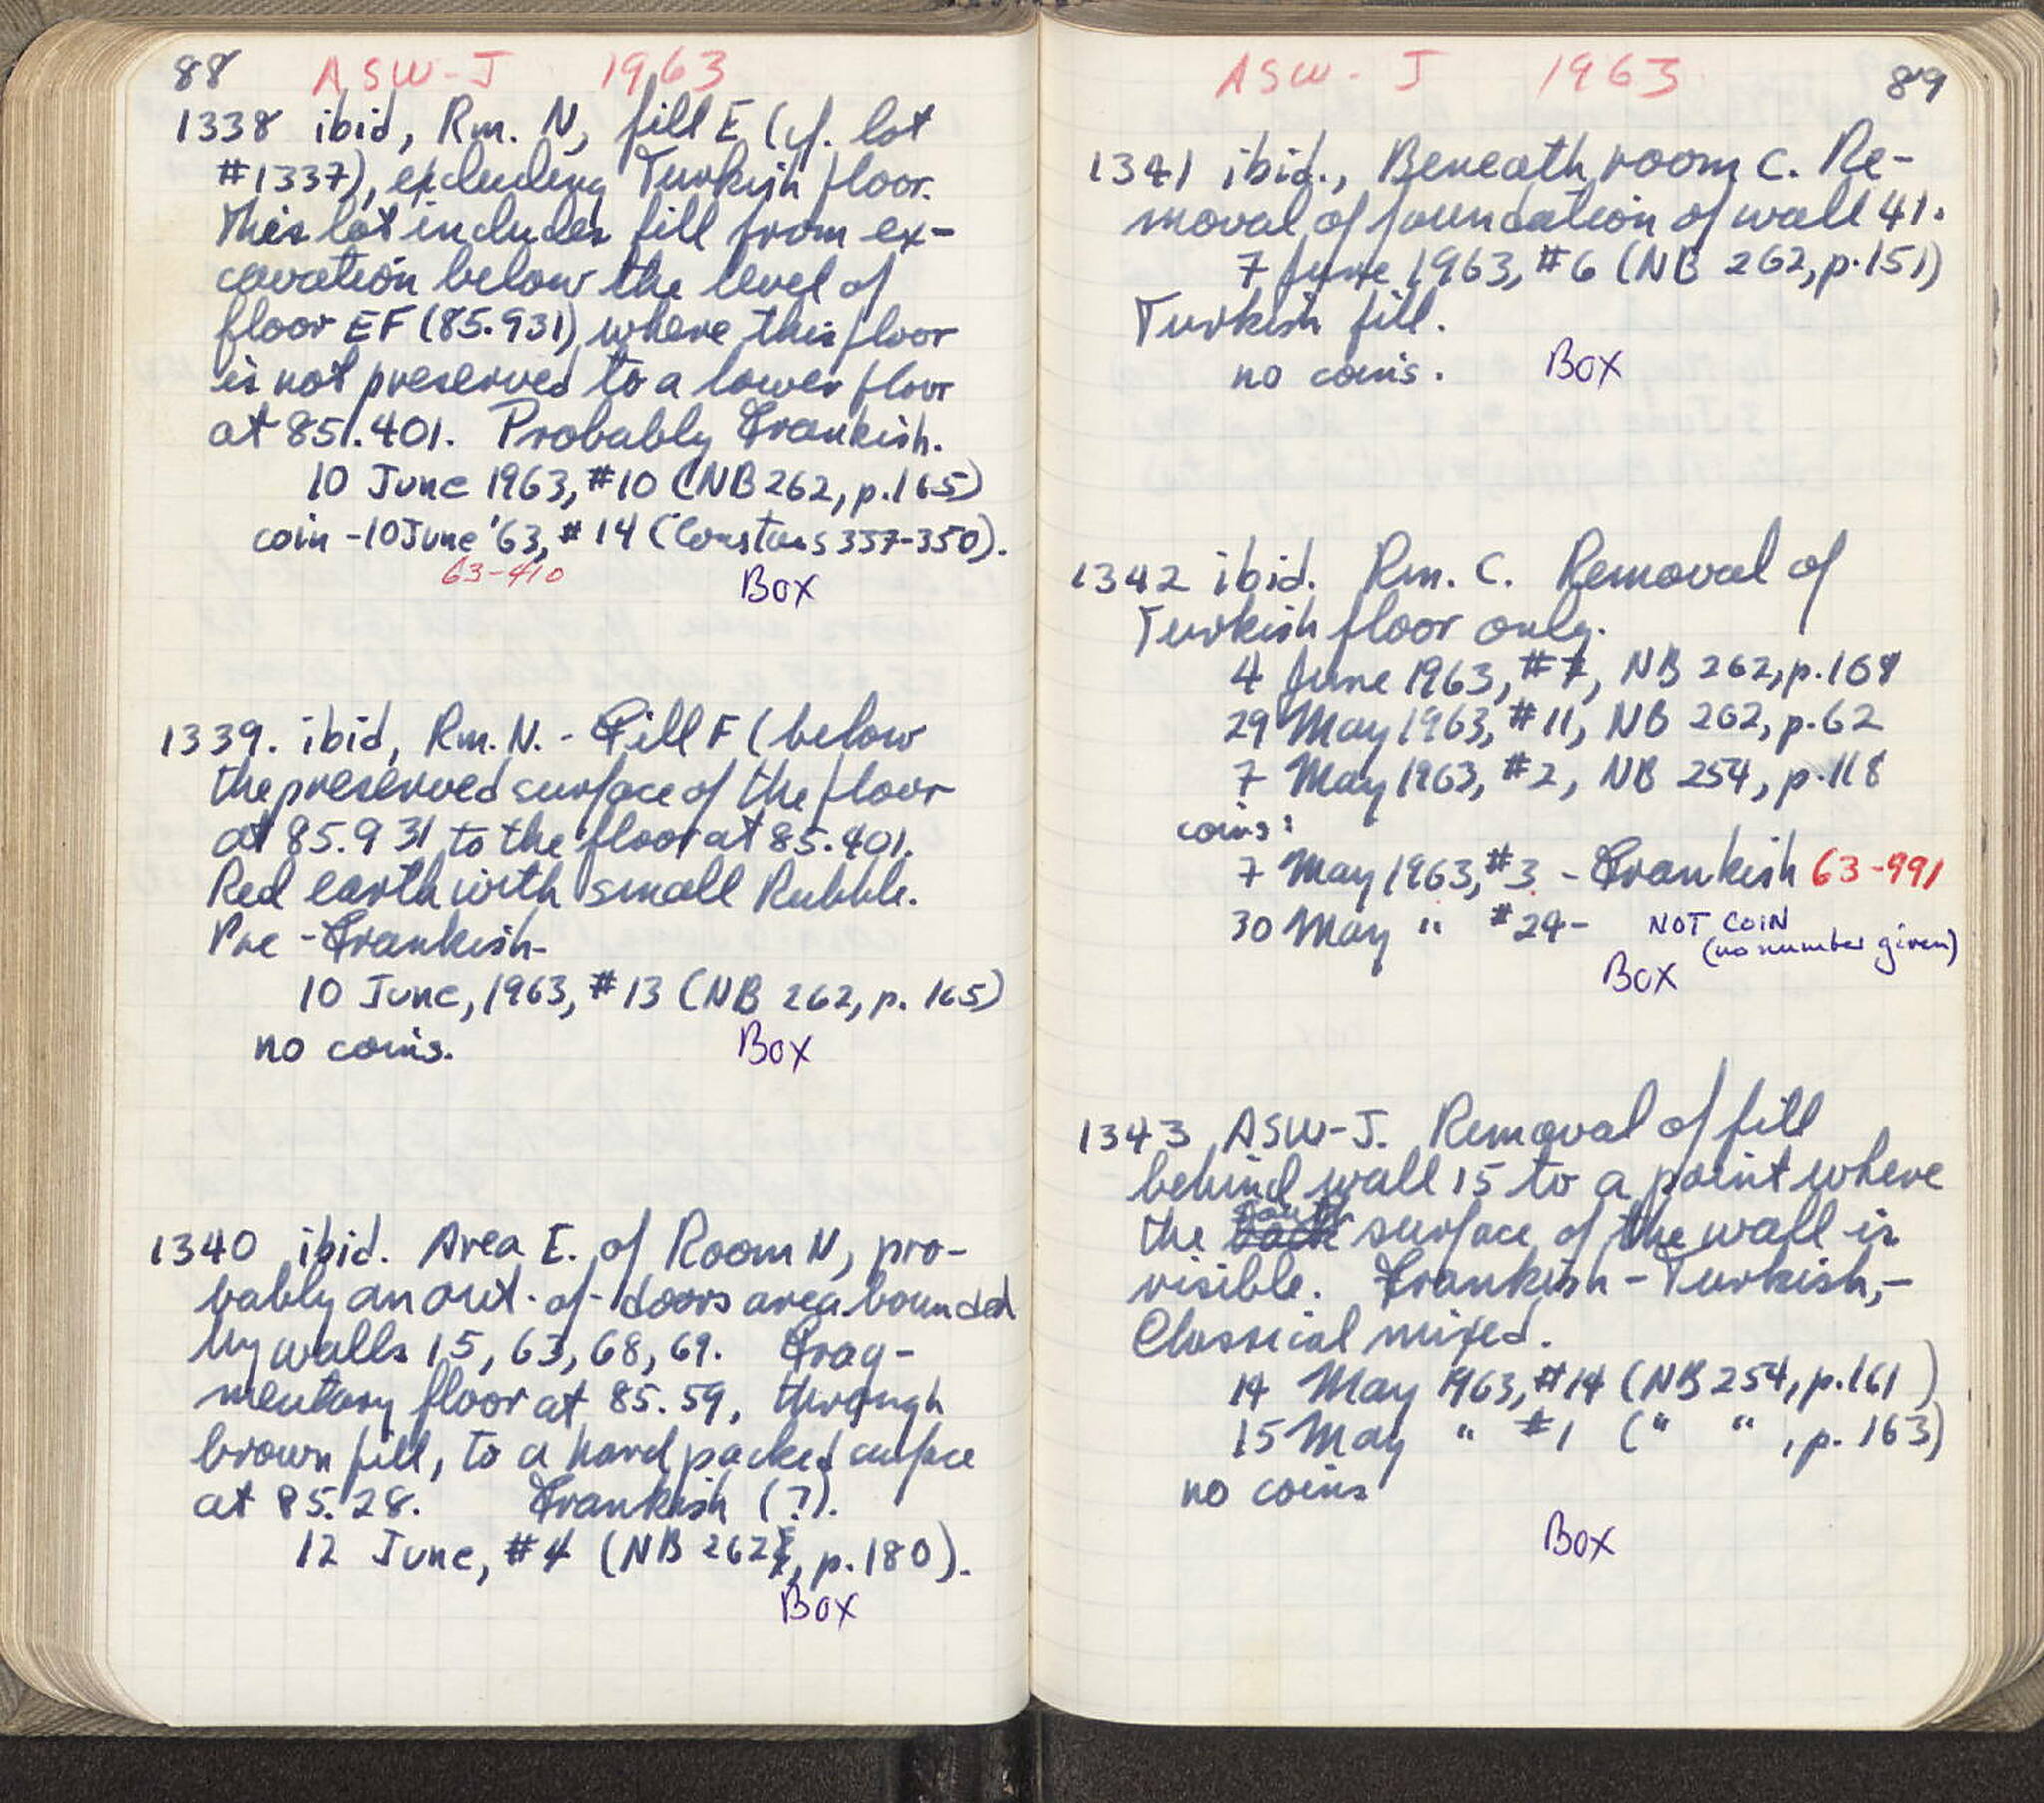 88 ASW-J 1963
1338 ibid, Rm. N, fill E (cf. lot
#1337), excluding Turkish floor.
This lot includes fill from ex-
cavation below the level of
floor EF (85.931) where this floor
is not preserved to a lower floor
at 85.401. Probably Frankish.
10 June 1963, #10 (NB 262, p.165)
coin - 10 June '63, #14 (Constans 337-350).
63-410
Box
1339. ibid, Rm. N. - Fill F (below
the preserved surface of the floor
at 85.931 to the floor at 85.401.
Red earth with small Rubble.
Pre-Frankish-
10 June, 1963, #13 (NB 262, p. 165)
no coins. Box
1340 ibid. Area E. of Room N, pro-
bably an out-of-doors area bounded
by walls 15, 63, 68, 69. Frag-
mentary floor at 85.59, through
brown fill, to a hard packed surface
at 85.28. Frankish (?).
12 June, #4 (NB 262, p.180).
Box
ASW-J 1963 89
1341 ibid., Beneath room C. Re-
moval of foundation of wall 41.
7 June 1963, #6 (NB 262, p.151)
Turkish fill.
no coins. Box
1342 ibid. Rm. C. Removal of
Turkish floor only.
4 June 1963, #7, NB 262, p.108
29 May 1963, #11, NB 262, p.62
7 May 1963, #2, NB 254, p.118
coins:
7 May 1963, #3 - Frankish 63-991
30 May " #24- NOT COIN
(no number given)
Box
1343 ASW-J. Removal of fill
behind wall 15 to a point where
the back south surface of the wall is
visible. Frankish-Turkish,-
Classical mixed.
14 May 1963, #14 (NB 254, p.161)
15 May " #1 (" ", p. 163)
no coins
Box